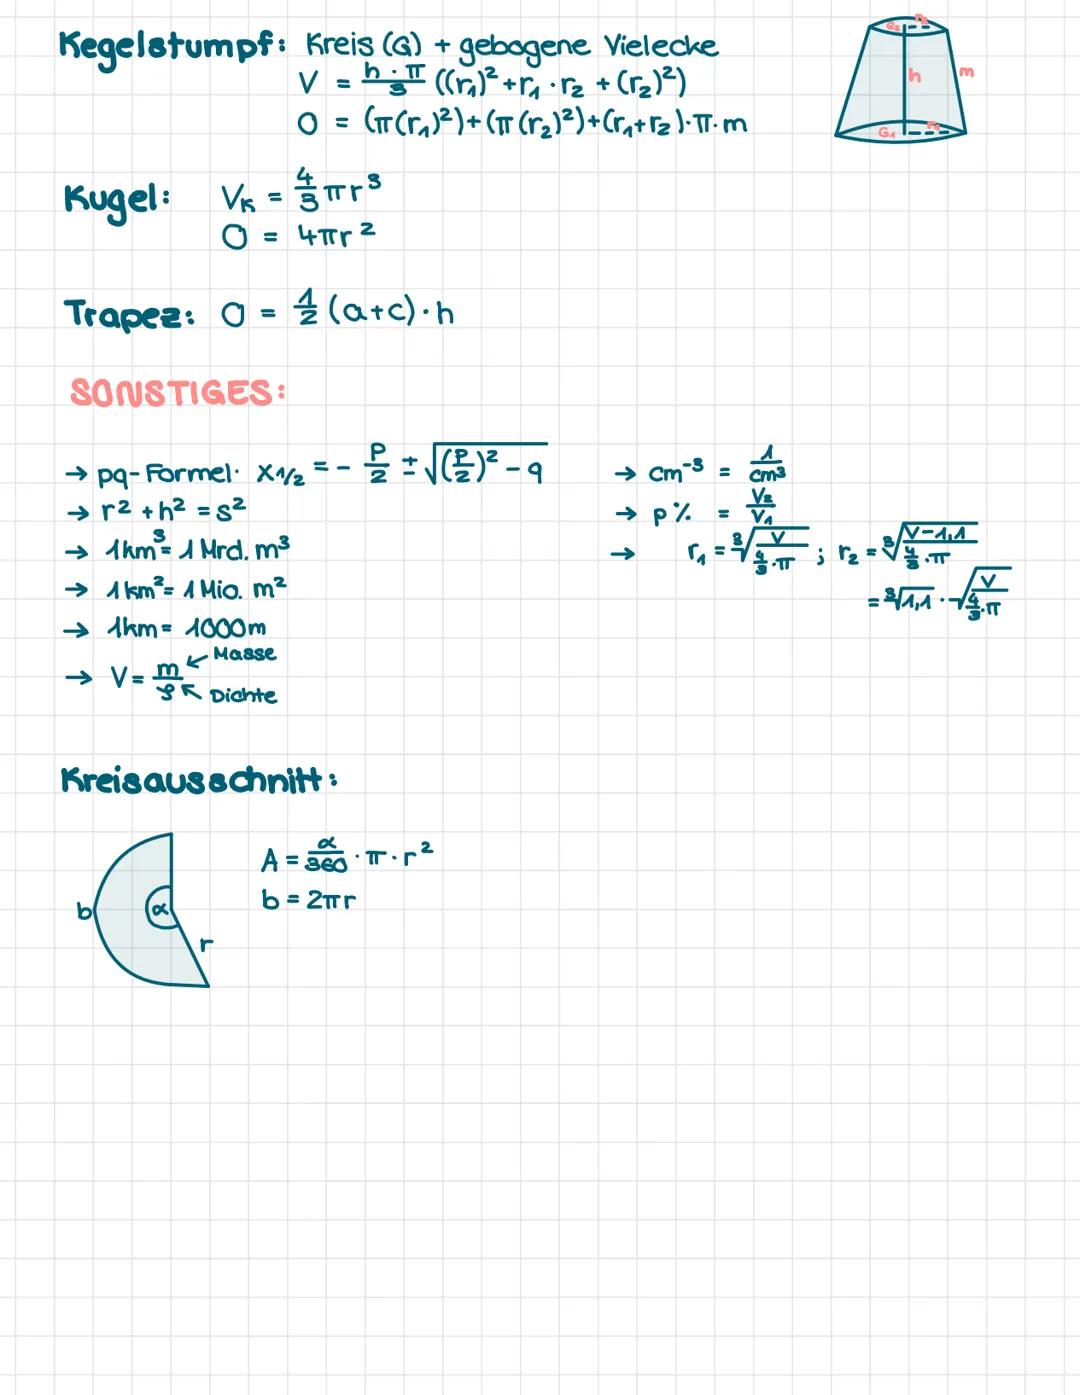 Kegelstumpf: Kreis (G) + gebogene Vielecke
V = h · π / 3 ((r₁)² + r₁ · r₂ + (r₂)²)
O = (π(r₁)²) + (π(r₂)²) + (r₁ + r₂) · π · m
G₂ r₂
h m
G₁ r₁
Kugel: Vₖ = 4/3 πr³
O = 4πr²
Trapez: O = 1/2 (a+c) · h
SONSTIGES:
→ pq-Formel: x₁/₂ = - p/2 ± √((p/2)² - q)
→ r² + h² = s²
→ 1km³ = 1 Mrd. m³
→ 1km² = 1 Mio. m²
→ 1km = 1000m
→ V = m/ρ ← Masse
← Dichte
→ cm⁻³ = 1/cm³
→ p% = V₂/V₁
→ r₁ = ³√(V / (4/3 · π)) ; r₂ = ³√((V-1,1) / (4/3 · π))
= ³√1,1 · √(V / (4/3 · π))
Kreisausschnitt:
b α r
A = α/360 · π · r²
b = 2πr